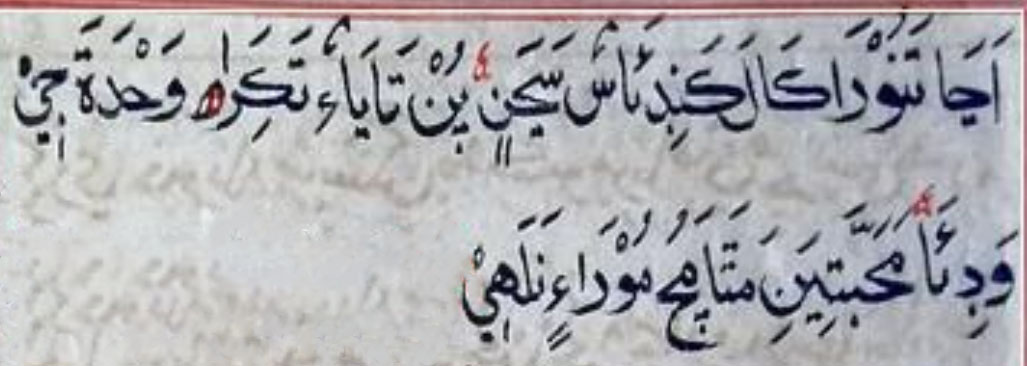 اَجَا تَنُوْرَا كَالَ كَنِدِئَاسُ سَيَجَنِ بِنْ تَايَاءِ تَكِرَار وَحْدَةَ جِيْ
وَدِئَا مَحَبَّتِيَنِ مَتَابِجُ مُوْرَاءِ نَلَهِيْ